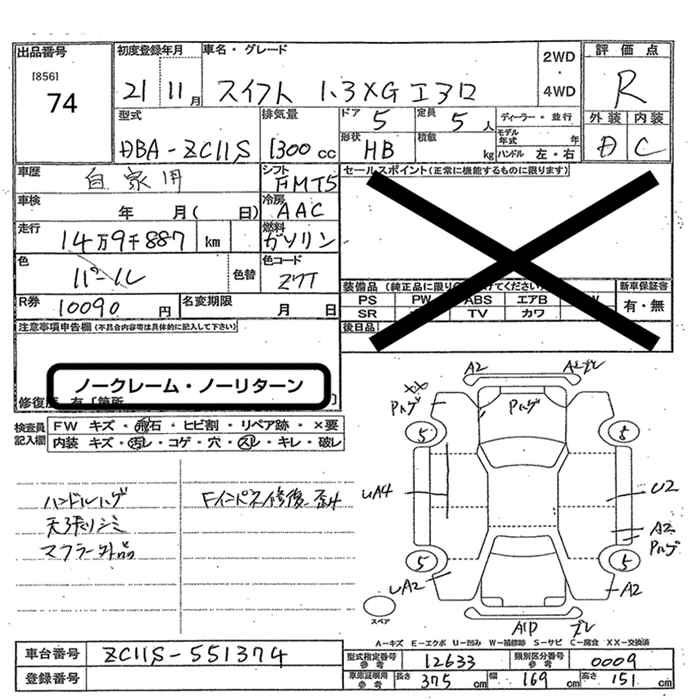 出品番号 初度登録年月 車名・グレード 2WD・4WD 評価点
[856] 74
21 11月 スイフト 1.3XG エアロ R
型式 排気量 ドア 5 定員 5人 ディーラー・並行 外装 内装
DBA-ZC11S 1300cc 形状 HB 積載 kg モデル年式 年 ハンドル 左・右 C
車歴 自家用 シフト FMT5 セールスポイント(正常に機能するものに限ります)
車検 年 月( 日) 冷房 AAC
走行 14万9千887 km 燃料 ガソリン
色 パール 色替 色コード Z7T
装備品(純正品に限り てください) 新車保証書
PS PW ABS エアB W 有・無
R券 10090円 名変期限 月 日
SR TV カワ
後日品
注意事項申告欄(不具合内容等は具体的に記入して下さい)
ノークレーム・ノーリターン
修復歴 有〔箇所 〕
検査員記入欄 FW キズ・飛石・ヒビ割・リペア跡・×要
内装 キズ・汚レ・コゲ・穴・スレ・キレ・破レ
A2
Pハゲ Pハゲ
5 5
ハンドルハゲ Fインパネ修復歪ミ
UA4 U2
天張リシミ
A2
マフラー外品
Pハゲ
5 5
UA2 A2
スペア
A1P ズレ
A-キズ E-エクボ U-凹み W-補修跡 S-サビ C-腐食 XX-交換済
車台番号 ZC11S-551374 型式指定番号 参考 12633 類別区分番号 参考 0009
登録番号 車庫証明用 参考 長さ 375cm 幅 169cm 高さ 151cm